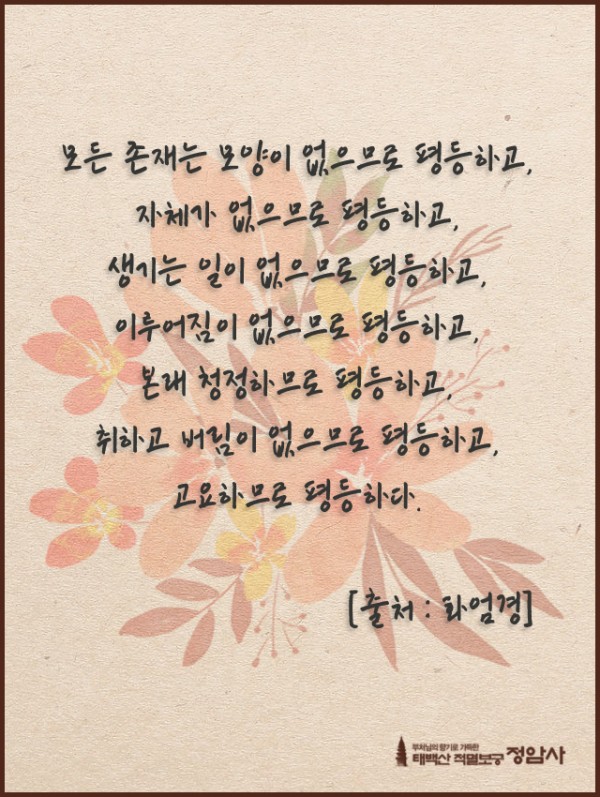 모든 존재는 모양이 없으므로 평등하고,
자체가 없으므로 평등하고,
생기는 일이 없으므로 평등하고,
이루어짐이 없으므로 평등하고,
본래 청정하므로 평등하고,
취하고 버림이 없으므로 평등하고,
고요하므로 평등하다.
[출처 : 화엄경]
부처님의 향기로 가득한
태백산 적멸보궁 정암사